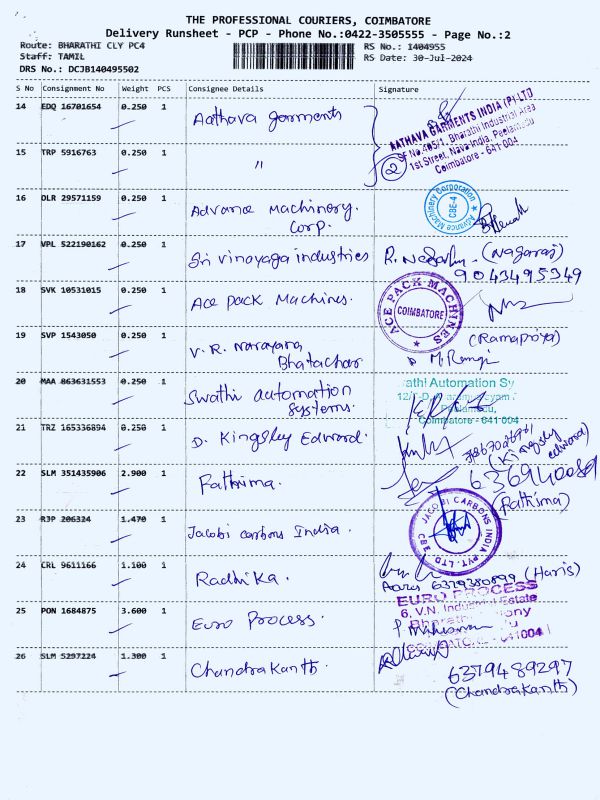 THE PROFESSIONAL COURIERS, COIMBATORE
Delivery Runsheet - PCP - Phone No.:0422-3505555 - Page No.:2
Route: BHARATHI CLY PC4 RS No.: 1404955
Staff: TAMIL RS Date: 30-Jul-2024
DRS No.: DCJB140495502
S No Consignment No Weight PCS Consignee Details Signature
14 EDQ 16701654 0.250 1 Aathava garments
AATHAVA GARMENTS INDIA (P) LTD
SF No.405/1, Bharathi Industrial Area
1st Street, Nava India, Peelamedu
Coimbatore - 641 004
15 TRP 5916763 0.250 1 " 2
16 DLR 29571159 0.250 1 Advance Machinery.
Corp.
Advance Machinery Corporation ★ CBE-4
17 VPL 522190162 0.250 1 Sri vinayaga industries R. (Nagaraj)
9043495349
18 SVK 10531015 0.250 1 Ace pack Machines.
ACE PACK MACHINES ★ COIMBATORE
19 SVP 1543050 0.250 1 V. R. Narayana
Bhatachar
(Ramapriya)
20 MAA 863631553 0.250 1 Swathi automation
Systems.
athi Automation Sy
Coimbatore - 641 004
21 TRZ 165336894 0.250 1 D. Kingsley Edward.
(Kingsley
edward)
22 SLM 351435906 2.900 1 Fathima.
(Fathima)
23 RJP 206324 1.470 1 Jacobi carbons India.
JACOBI CARBONS INDIA PVT. LTD. CBE
24 CRL 9611166 1.100 1 Radhika.
6379380899 (Haris)
25 PON 1684875 3.600 1 Euro Process.
EURO PROCESS
6, V.N. Industrial Estate
Bharathi Colony
COIMBATORE - 641004
26 SLM 5297224 1.300 1 Chandrakanth.
6379489297
(Chandrakanth)